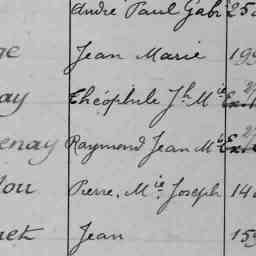 André Paul Gabr 25
Jean Marie 199
ay Théophile Jh Mie
enay Raymond Jean Mie
lou Pierre, Mie Joseph 14
Jean 159